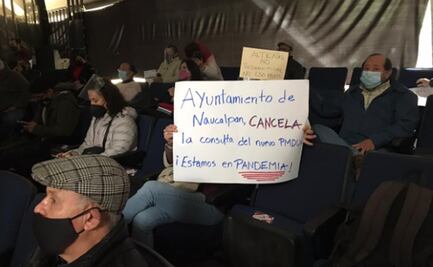 AYUntamiento de
Naucalpan, CANCELA
la consulta del nuevo PMDU
¡Estamos en PANDEMIA!